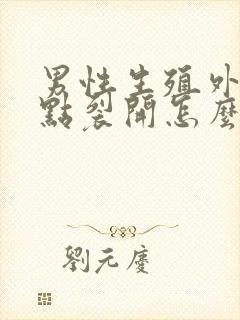 男性生殖外
點裂開怎麼
劉元慶